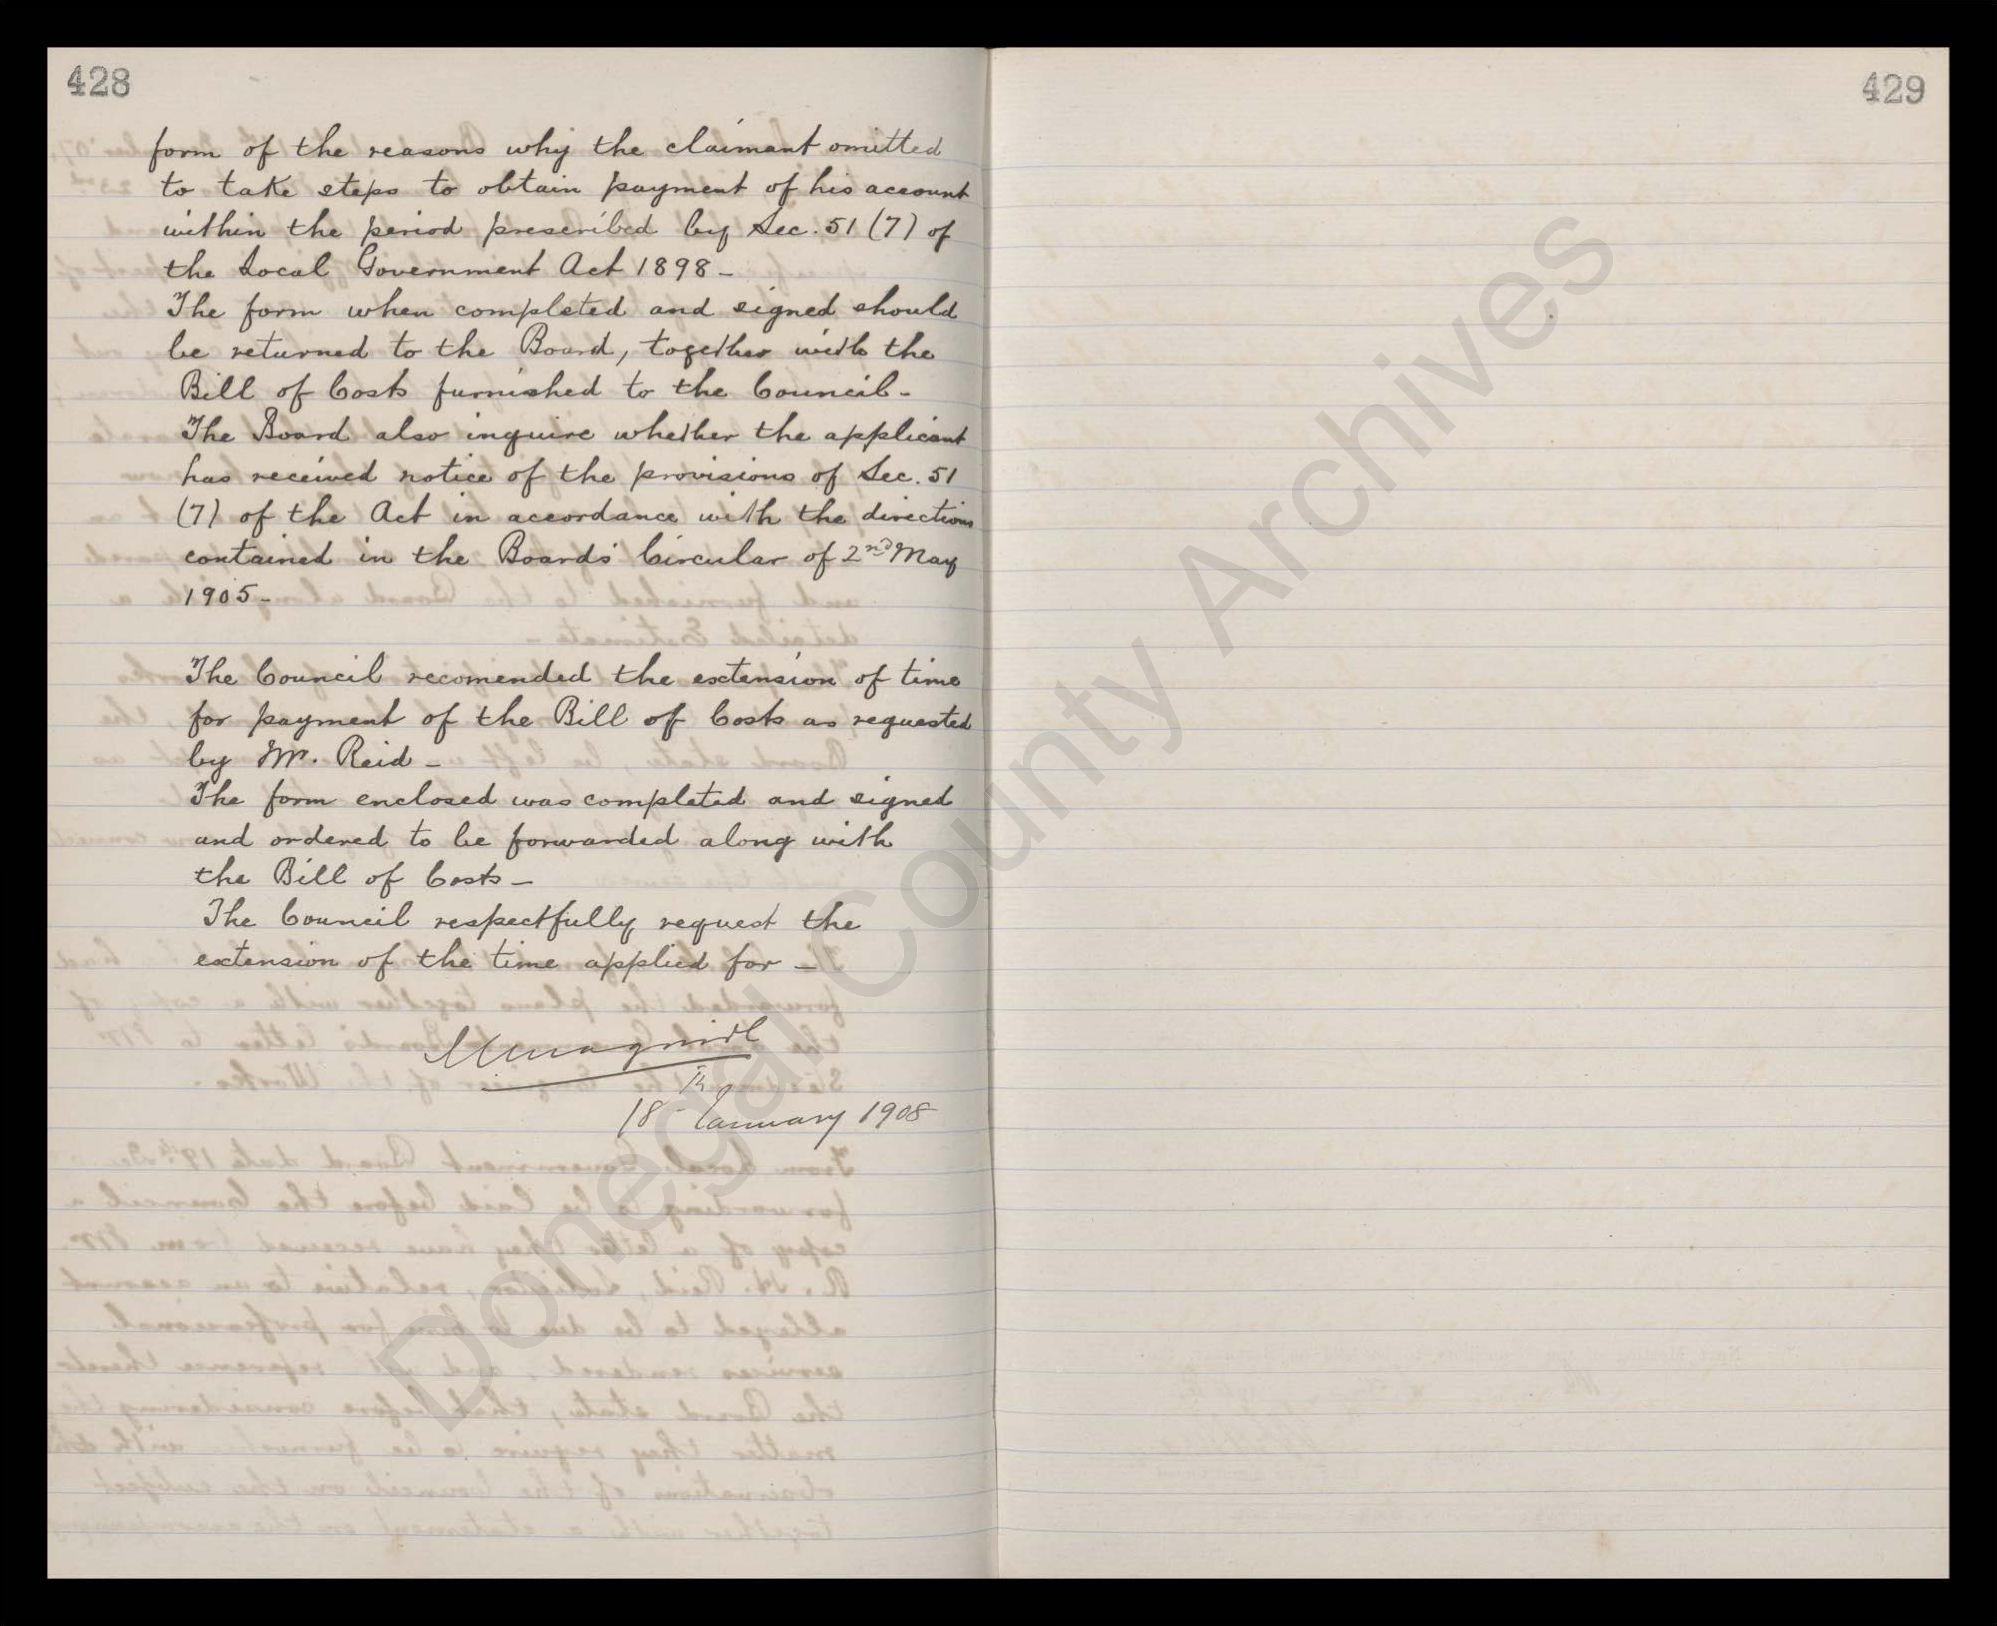 428
form of the reasons why the claimant omitted
to take steps to obtain payment of his account
within the period prescribed by Sec. 51 (7) of
the Local Government Act 1898 -
The form when completed and signed should
be returned to the Board, together with the
Bill of Costs furnished to the Council -
The Board also inquire whether the applicant
has received notice of the provisions of Sec. 51
(7) of the Act in accordance with the directions
contained in the Boards' Circular of 2nd May
1905 -
The Council recomended the extension of time
for payment of the Bill of Costs as requested
by Mr. Reid -
The form enclosed was completed and signed
and ordered to be forwarded along with
the Bill of Costs -
The Council respectfully request the
extension of the time applied for -
18th January 1908
429
Donegal County Archives